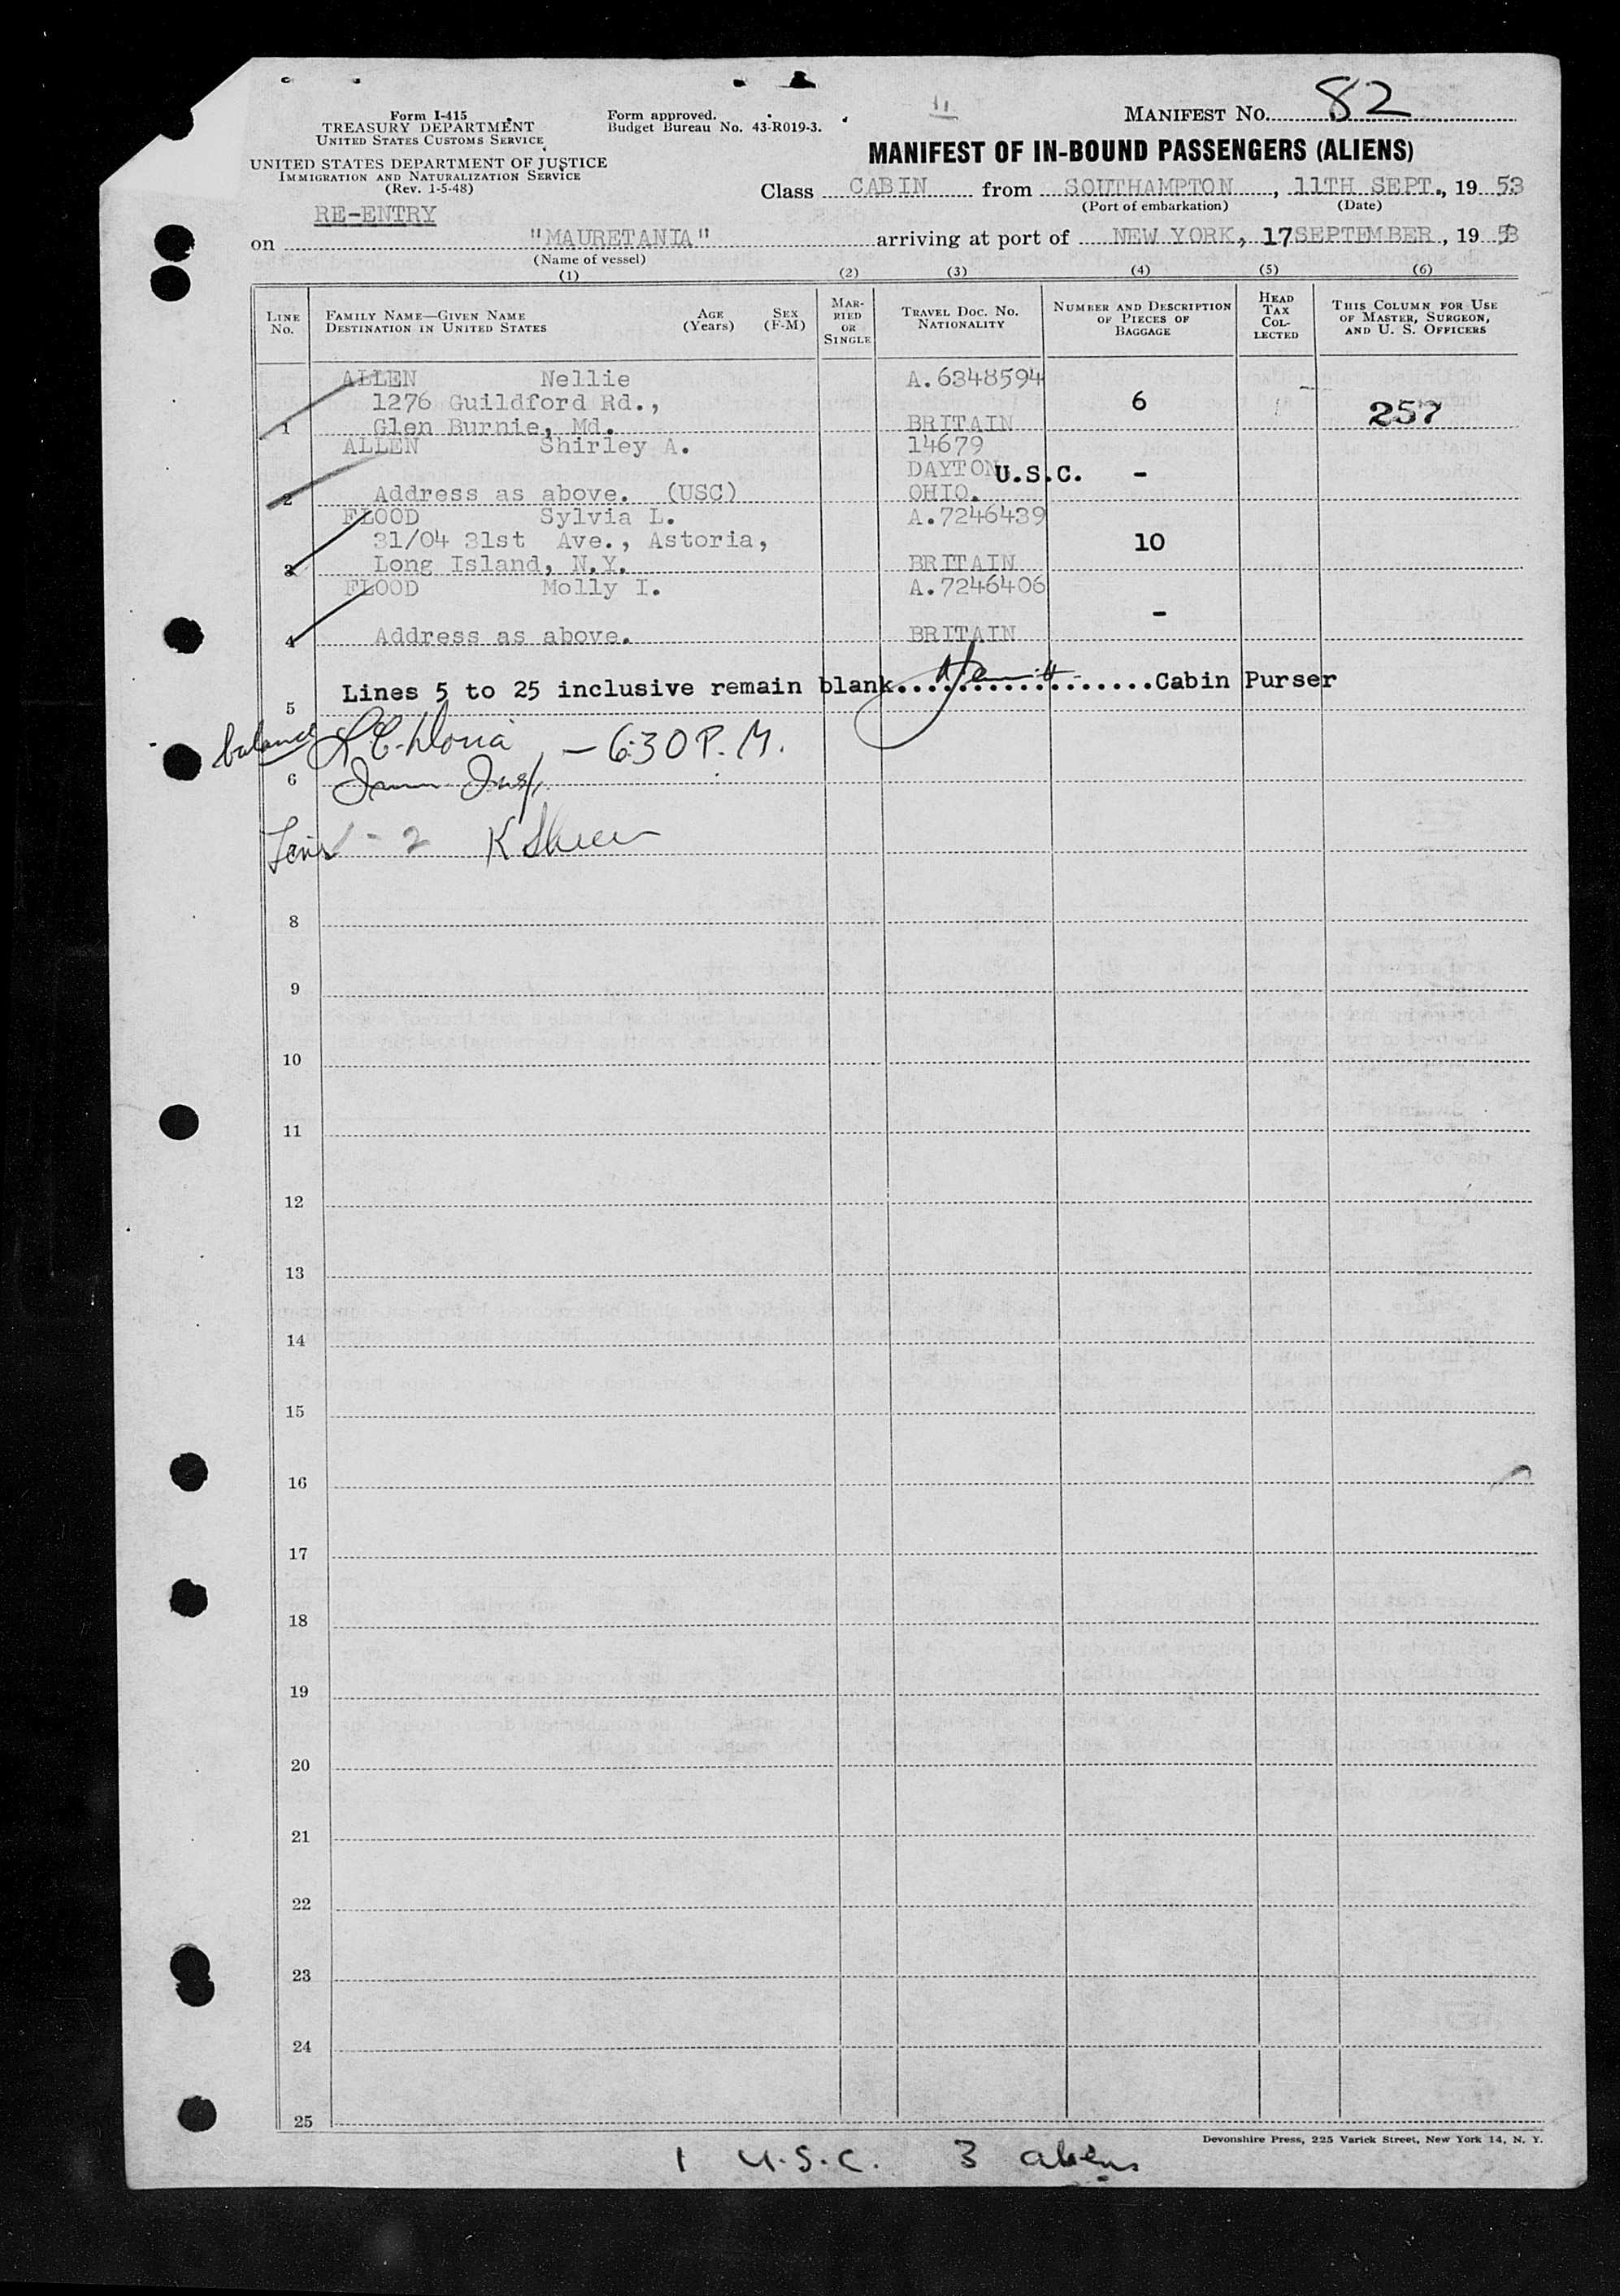 Form I-415
TREASURY DEPARTMENT
UNITED STATES CUSTOMS SERVICE
UNITED STATES DEPARTMENT OF JUSTICE
IMMIGRATION AND NATURALIZATION SERVICE
(Rev. 1-5-48)
Form approved.
Budget Bureau No. 43-R019-3.
MANIFEST NO. 82
MANIFEST OF IN-BOUND PASSENGERS (ALIENS)
Class CABIN from SOUTHAMPTON, 11TH SEPT., 19 53
(Port of embarkation) (Date)
RE-ENTRY
on "MAURETANIA" arriving at port of NEW YORK, 17 SEPTEMBER, 19 53
(Name of vessel)
(1) (2) (3) (4) (5) (6)
LINE No. FAMILY NAME—GIVEN NAME DESTINATION IN UNITED STATES AGE (Years) SEX (F-M) MARRIED OR SINGLE TRAVEL DOC. NO. NATIONALITY NUMBER AND DESCRIPTION OF PIECES OF BAGGAGE HEAD TAX COLLECTED THIS COLUMN FOR USE OF MASTER, SURGEON, AND U. S. OFFICERS
ALLEN Nellie A.6348594
1276 Guildford Rd., 6 257
1 Glen Burnie, Md. BRITAIN
ALLEN Shirley A. 14679
DAYTON U.S.C. -
2 Address as above. (USC) OHIO.
FLOOD Sylvia L. A.7246439
31/04 31st Ave., Astoria, 10
3 Long Island, N.Y. BRITAIN
FLOOD Molly I. A.7246406
-
4 Address as above. BRITAIN
Lines 5 to 25 inclusive remain blank...................Cabin Purser
5
balance - 6:30 P.M.
6 Imm Insp.
Line 1 - 2
8
9
10
11
12
13
14
15
16
17
18
19
20
21
22
23
24
25
Devonshire Press, 225 Varick Street, New York 14, N. Y.
1 U.S.C. 3 aliens